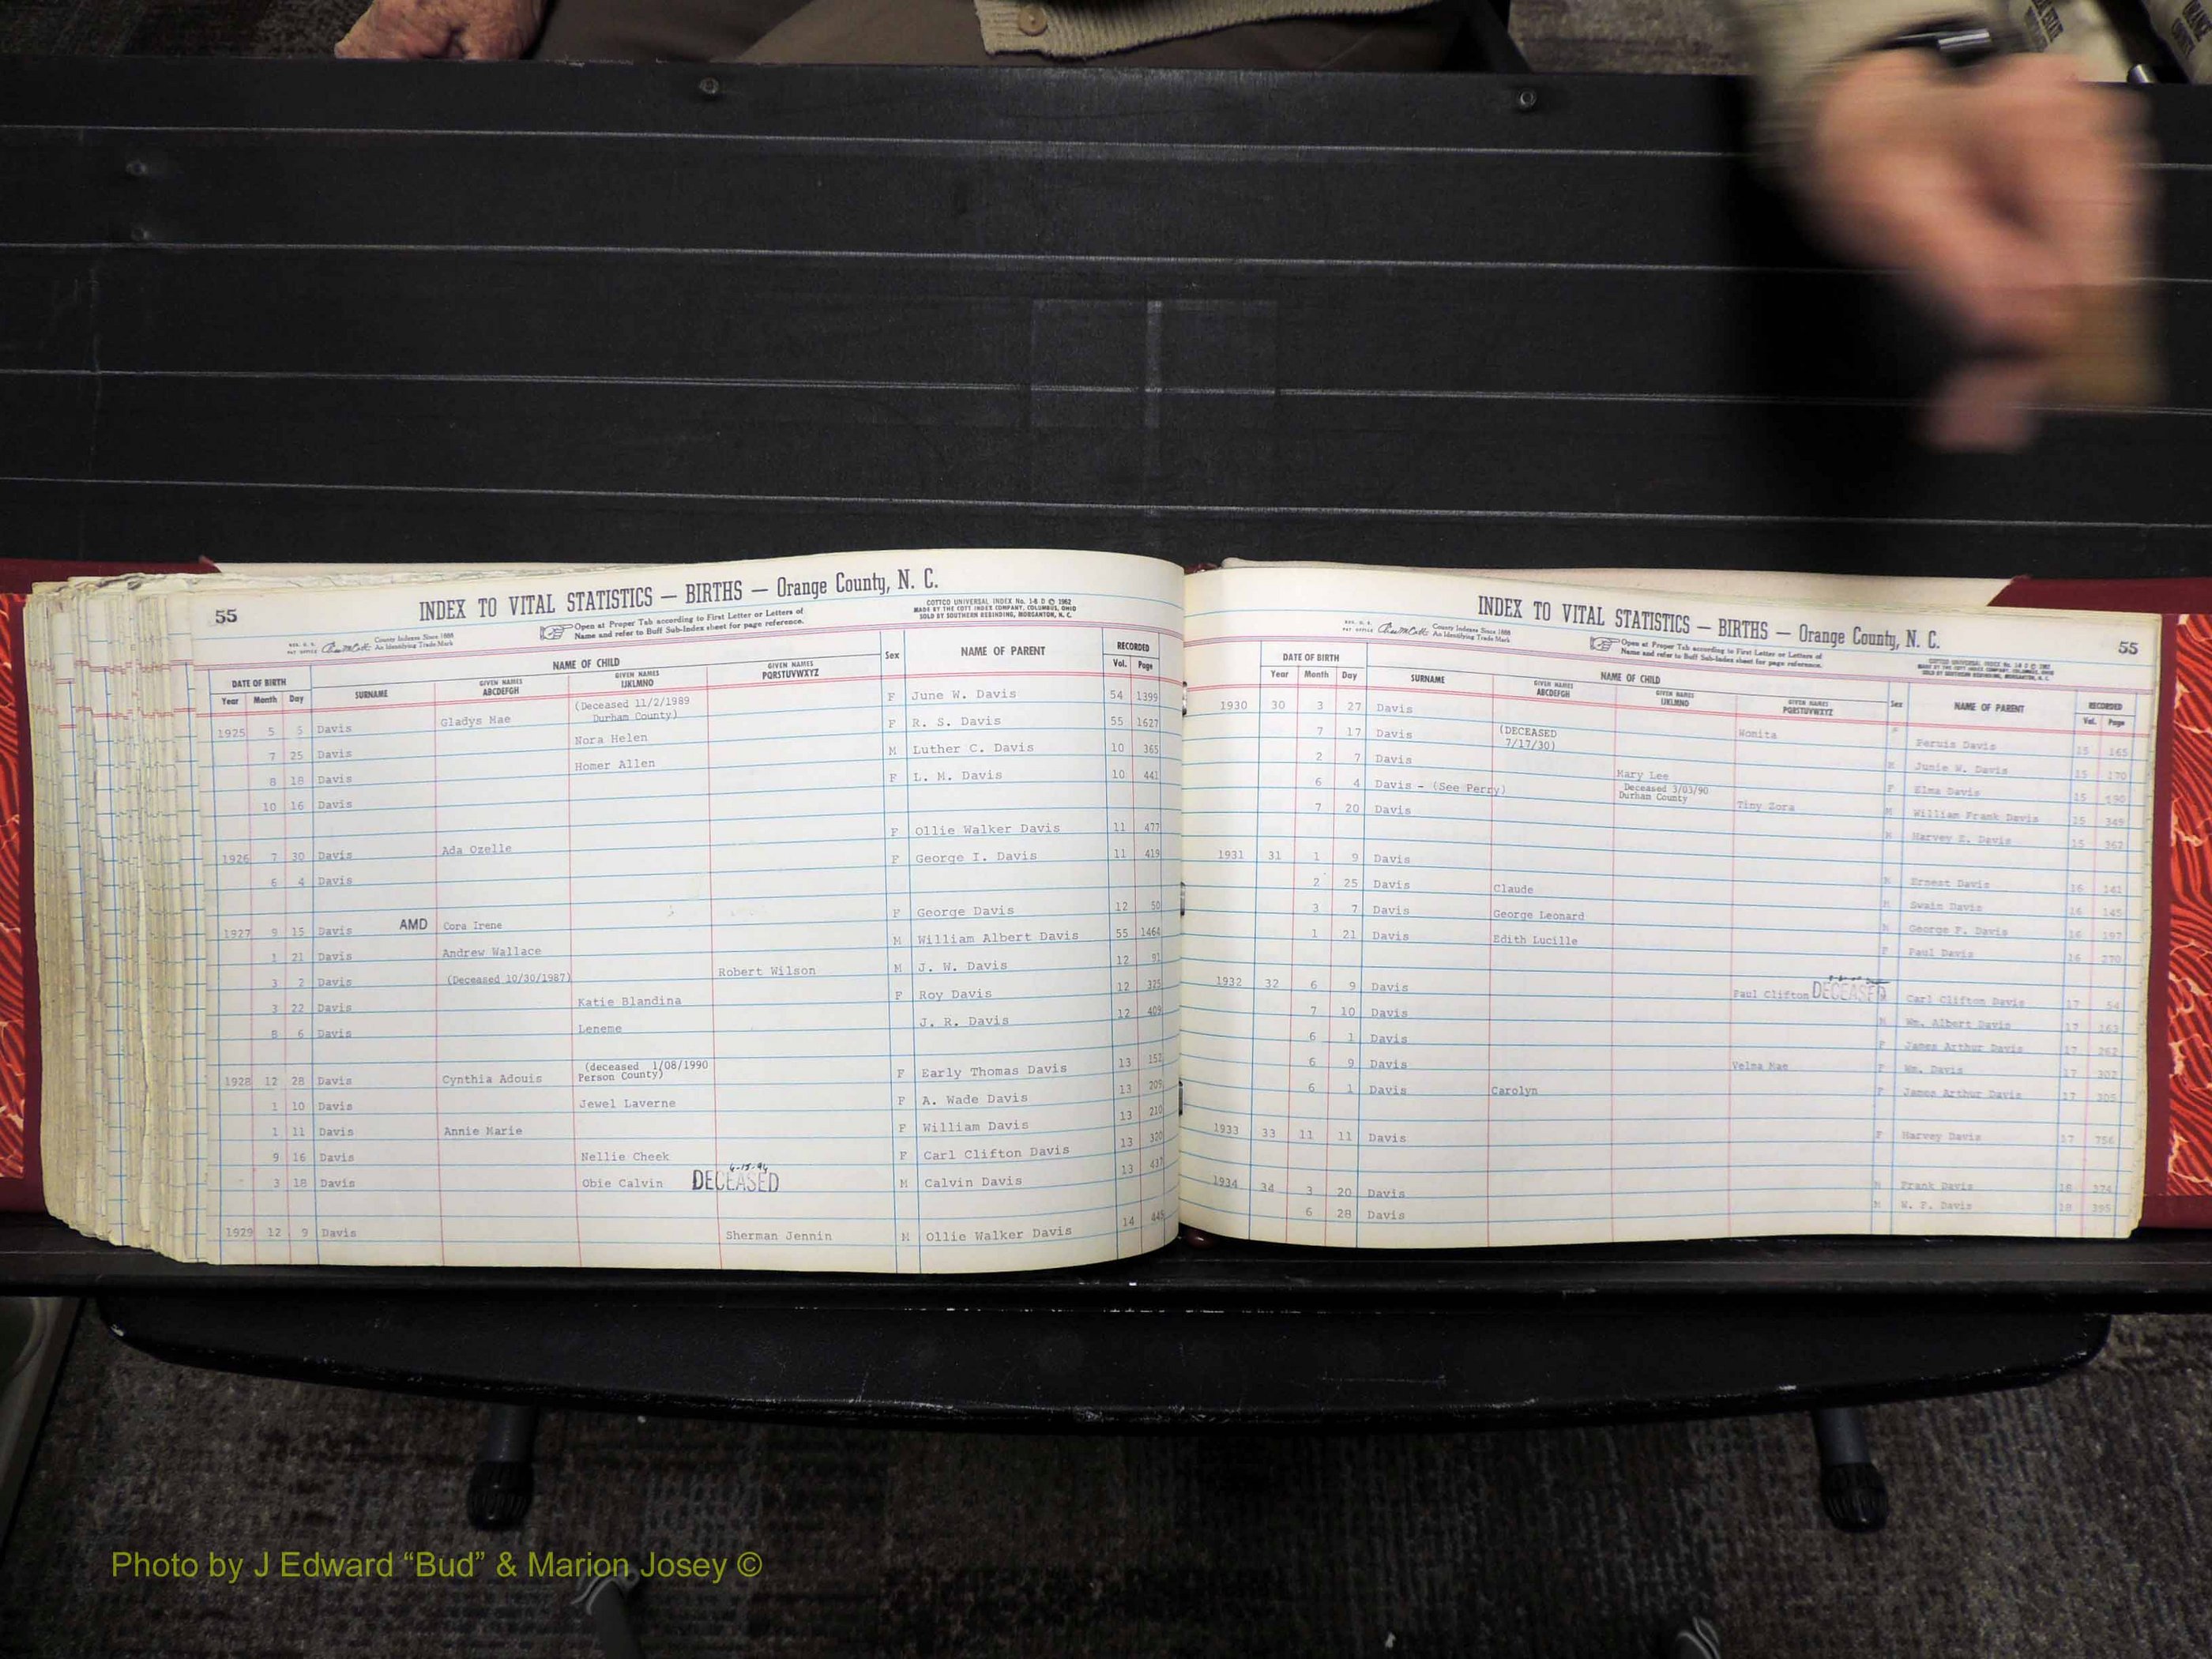 55
INDEX TO VITAL STATISTICS — BIRTHS — Orange County, N. C.
COTTCO UNIVERSAL INDEX No. 1-8 D © 1962
MADE BY THE COTT INDEX COMPANY, COLUMBUS, OHIO
SOLD BY SOUTHERN REBINDING, MORGANTON, N. C.
County Indexes Since 1888
An Identifying Trade Mark
Open at Proper Tab according to First Letter or Letters of
Name and refer to Buff Sub-Index sheet for page reference.
DATE OF BIRTH NAME OF CHILD Sex NAME OF PARENT RECORDED
Year Month Day SURNAME GIVEN NAMES ABCDEFGH GIVEN NAMES IJKLMNO GIVEN NAMES PQRSTUVWXYZ Vol. Page
1925 5 5 Davis Gladys Mae (Deceased 11/2/1989 Durham County) F June W. Davis 54 1399
7 25 Davis Nora Helen F R. S. Davis 55 1627
8 18 Davis Homer Allen M Luther C. Davis 10 365
10 16 Davis F L. M. Davis 10 441
1926 7 30 Davis Ada Ozelle F Ollie Walker Davis 11 477
6 4 Davis F George I. Davis 11 419
1927 9 15 Davis AMD Cora Irene F George Davis 12 50
1 21 Davis Andrew Wallace M William Albert Davis 55 1464
3 2 Davis (Deceased 10/30/1987) Robert Wilson M J. W. Davis 12 91
3 22 Davis Katie Blandina F Roy Davis 12 375
8 6 Davis Leneme J. R. Davis 12 409
1928 12 28 Davis Cynthia Adouis (deceased 1/08/1990 Person County) F Early Thomas Davis 13 152
1 10 Davis Jewel Laverne F A. Wade Davis 13 209
1 11 Davis Annie Marie F William Davis 13 210
9 16 Davis Nellie Cheek F Carl Clifton Davis 13 320
3 18 Davis Obie Calvin DECEASED 6-15-94 M Calvin Davis 13 437
1929 12 9 Davis Sherman Jennin M Ollie Walker Davis 14
INDEX TO VITAL STATISTICS — BIRTHS — Orange County, N. C.
55
County Indexes Since 1888
An Identifying Trade Mark
Open at Proper Tab according to First Letter or Letters of
Name and refer to Buff Sub-Index sheet for page reference.
DATE OF BIRTH NAME OF CHILD Sex NAME OF PARENT RECORDED
Year Month Day SURNAME GIVEN NAMES ABCDEFGH GIVEN NAMES IJKLMNO GIVEN NAMES PQRSTUVWXYZ Vol. Page
1930 30 3 27 Davis Wonita Davis 15 165
7 17 Davis (DECEASED 7/17/30) M Junie W. Davis 15 170
2 7 Davis Mary Lee Deceased 3/03/90 Durham County F Elma Davis 15 190
6 4 Davis - (See Perry) Tiny Zora William Frank Davis 15 349
7 20 Davis M Harvey E. Davis 15 362
1931 31 1 9 Davis Ernest Davis 16 141
2 25 Davis Claude M Swain Davis 16 145
3 7 Davis George Leonard George F. Davis 16 197
1 21 Davis Edith Lucille F Paul Davis 16 270
1932 32 6 9 Davis Paul Clifton DECEASED Carl Clifton Davis 17 54
7 10 Davis M Wm. Albert Davis 17 163
6 1 Davis F James Arthur Davis 17 262
6 9 Davis Velma Mae F Wm. Davis 17 302
6 1 Davis Carolyn F James Arthur Davis 17 305
1933 33 11 11 Davis F Harvey Davis 17 756
1934 34 3 20 Davis Frank Davis 18 374
6 28 Davis M W. F. Davis 18 395
Photo by J Edward “Bud” & Marion Josey ©